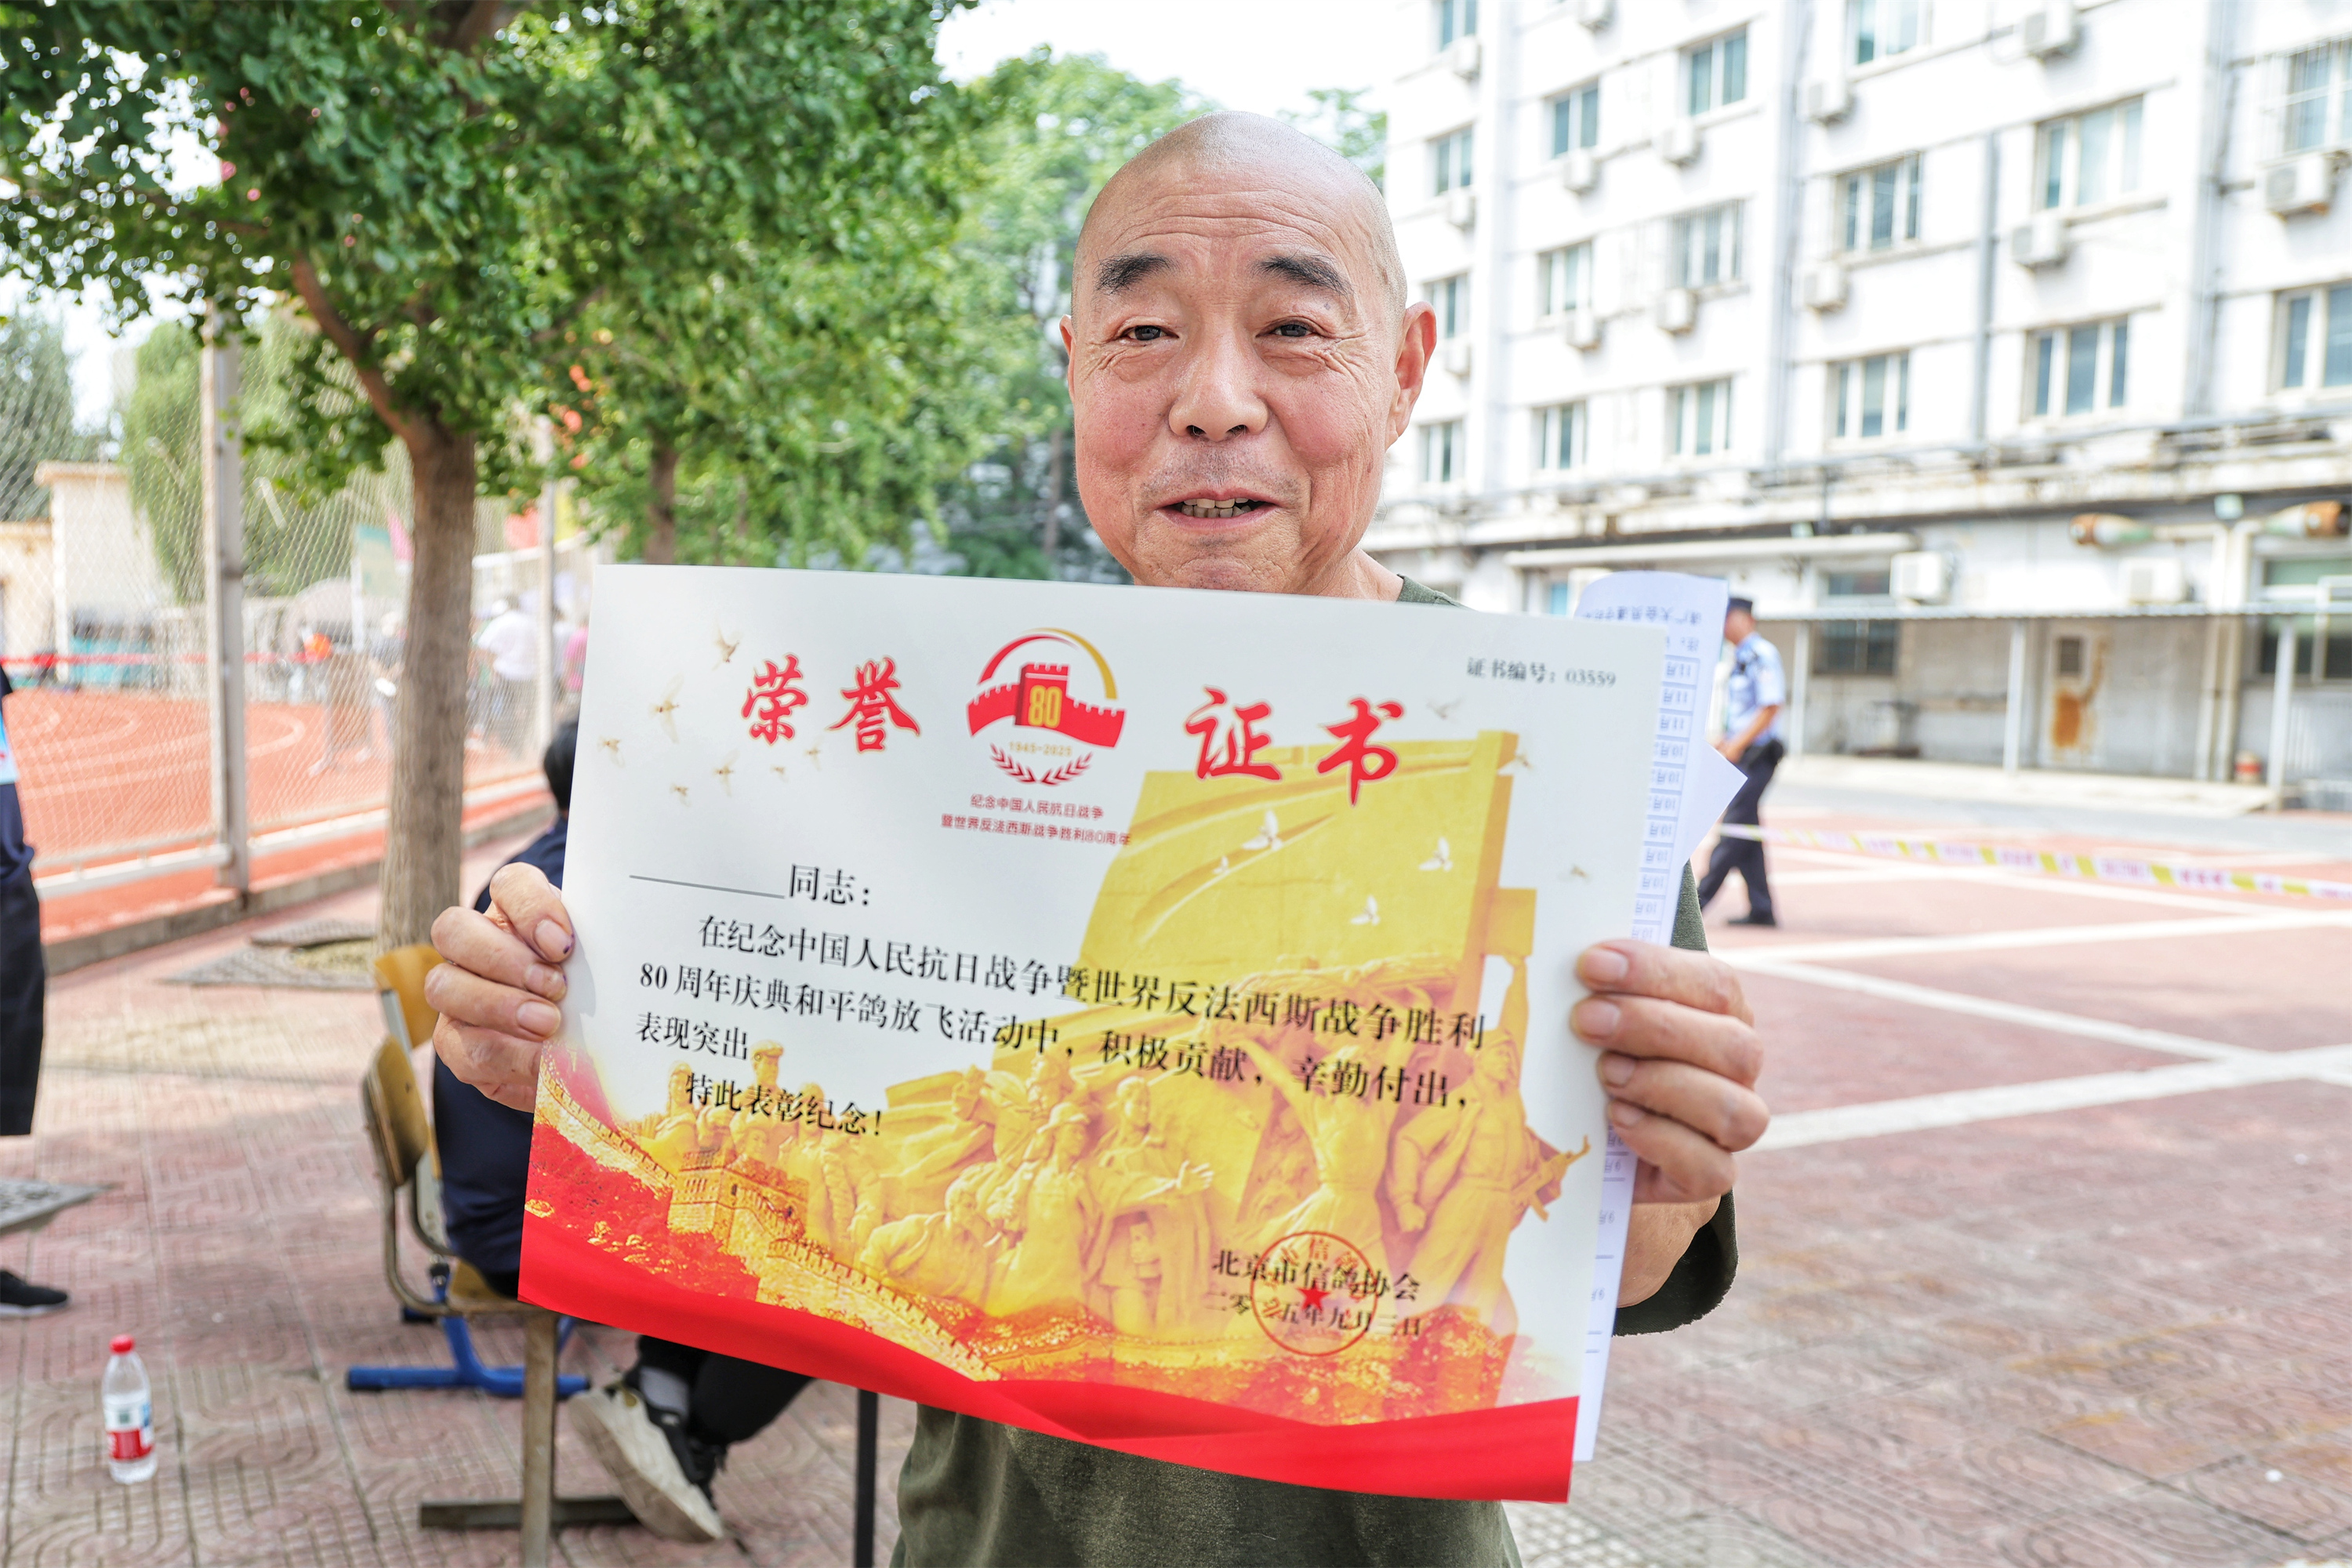 证书编号：03559
荣誉 证书
80
1945-2025
纪念中国人民抗日战争
暨世界反法西斯战争胜利80周年
同志：
在纪念中国人民抗日战争暨世界反法西斯战争胜利
80周年庆典和平鸽放飞活动中，积极贡献，辛勤付出，
表现突出。
特此表彰纪念！
北京市信鸽协会
二零二五年九月三日